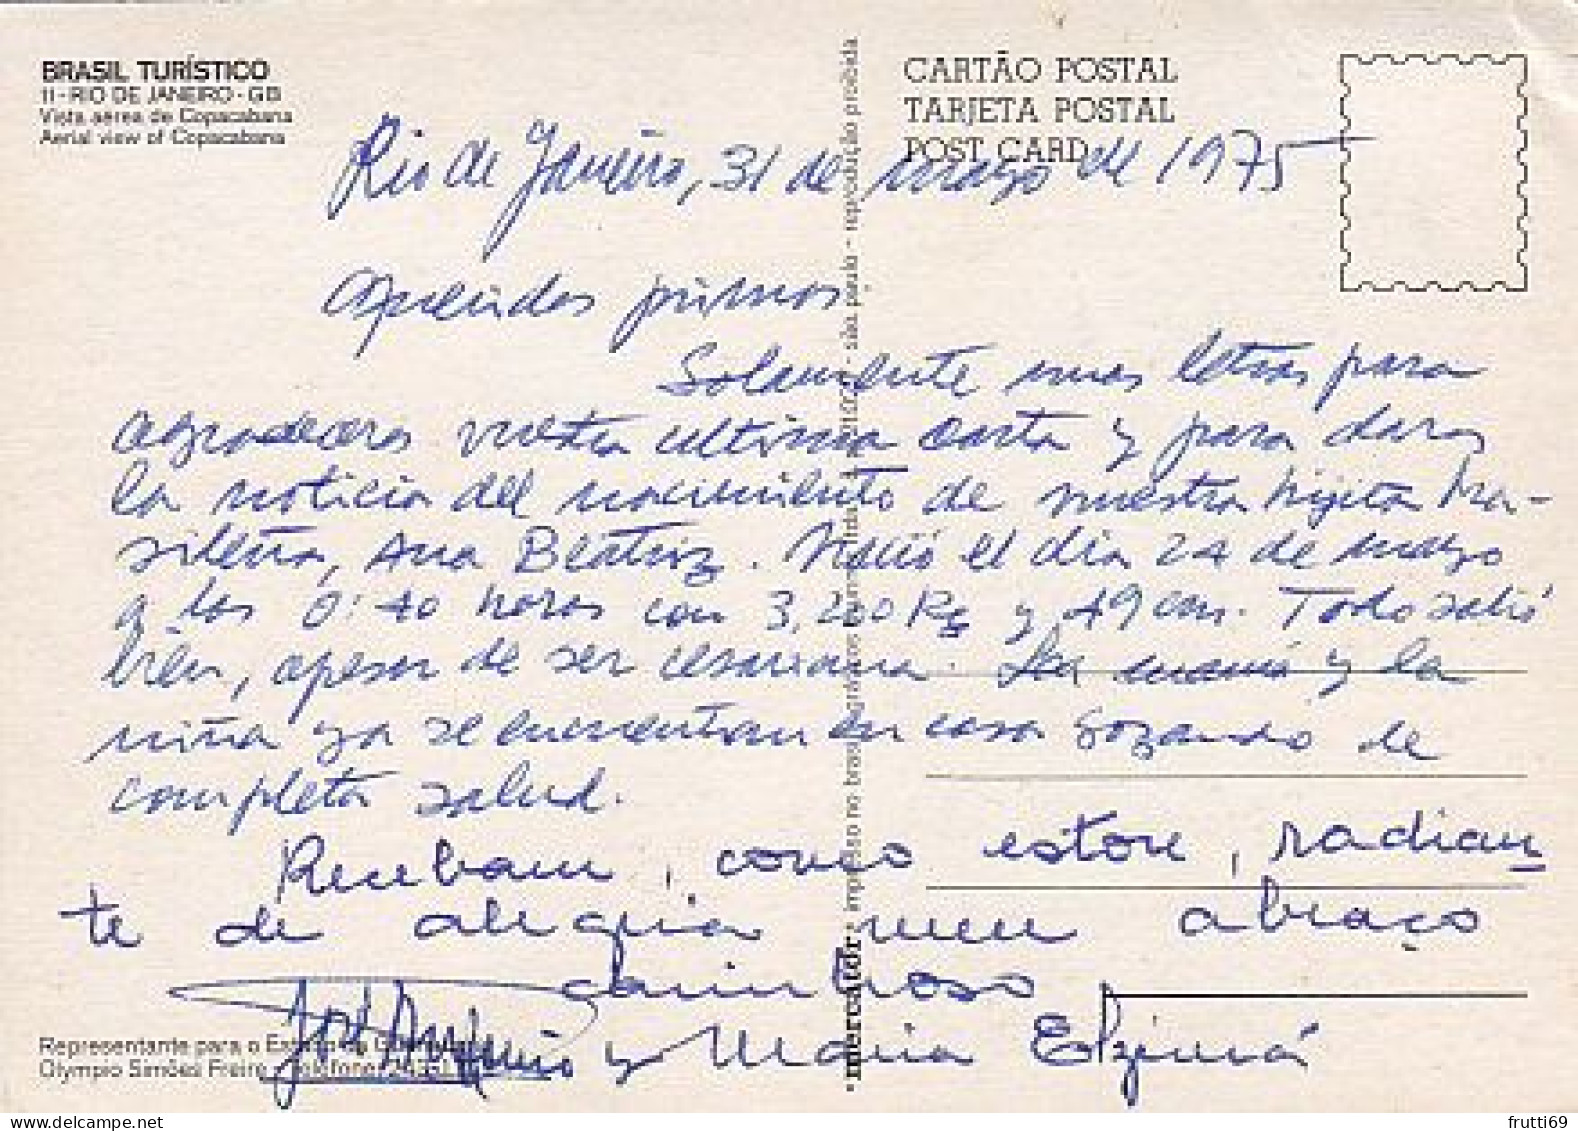 BRASIL TURÍSTICO
11-RIO DE JANEIRO-GB
Vista aerea de Copacabana
Aerial view of Copacabana
CARTÃO POSTAL
TARJETA POSTAL
POST CARD
Rio de Janeiro, 31 de mayo de 1975
Queridos primos,
Solamente unas letras para
agradeceros vuestra ultima carta y para daros
la noticia del nacimiento de nuestra hijita bra-
sileña, Ana Beatriz. Nació el dia 24 de mayo
a las 0:40 horas con 3,200 Kg y 49 cm. Todo salió
bien, apesar de ser cesareana. La mamá y la
niña ya se encuentran en casa gozando de
completa salud.
Recebam, como estou, radian
te de alegria um abraço
carinhoso
José Antonio y Maria Elzimá
Representante para o
Olympio Simões Freire
mercator - impresso no brasil
são paulo - reprodução proibida
frutti69
www.delcampe.net